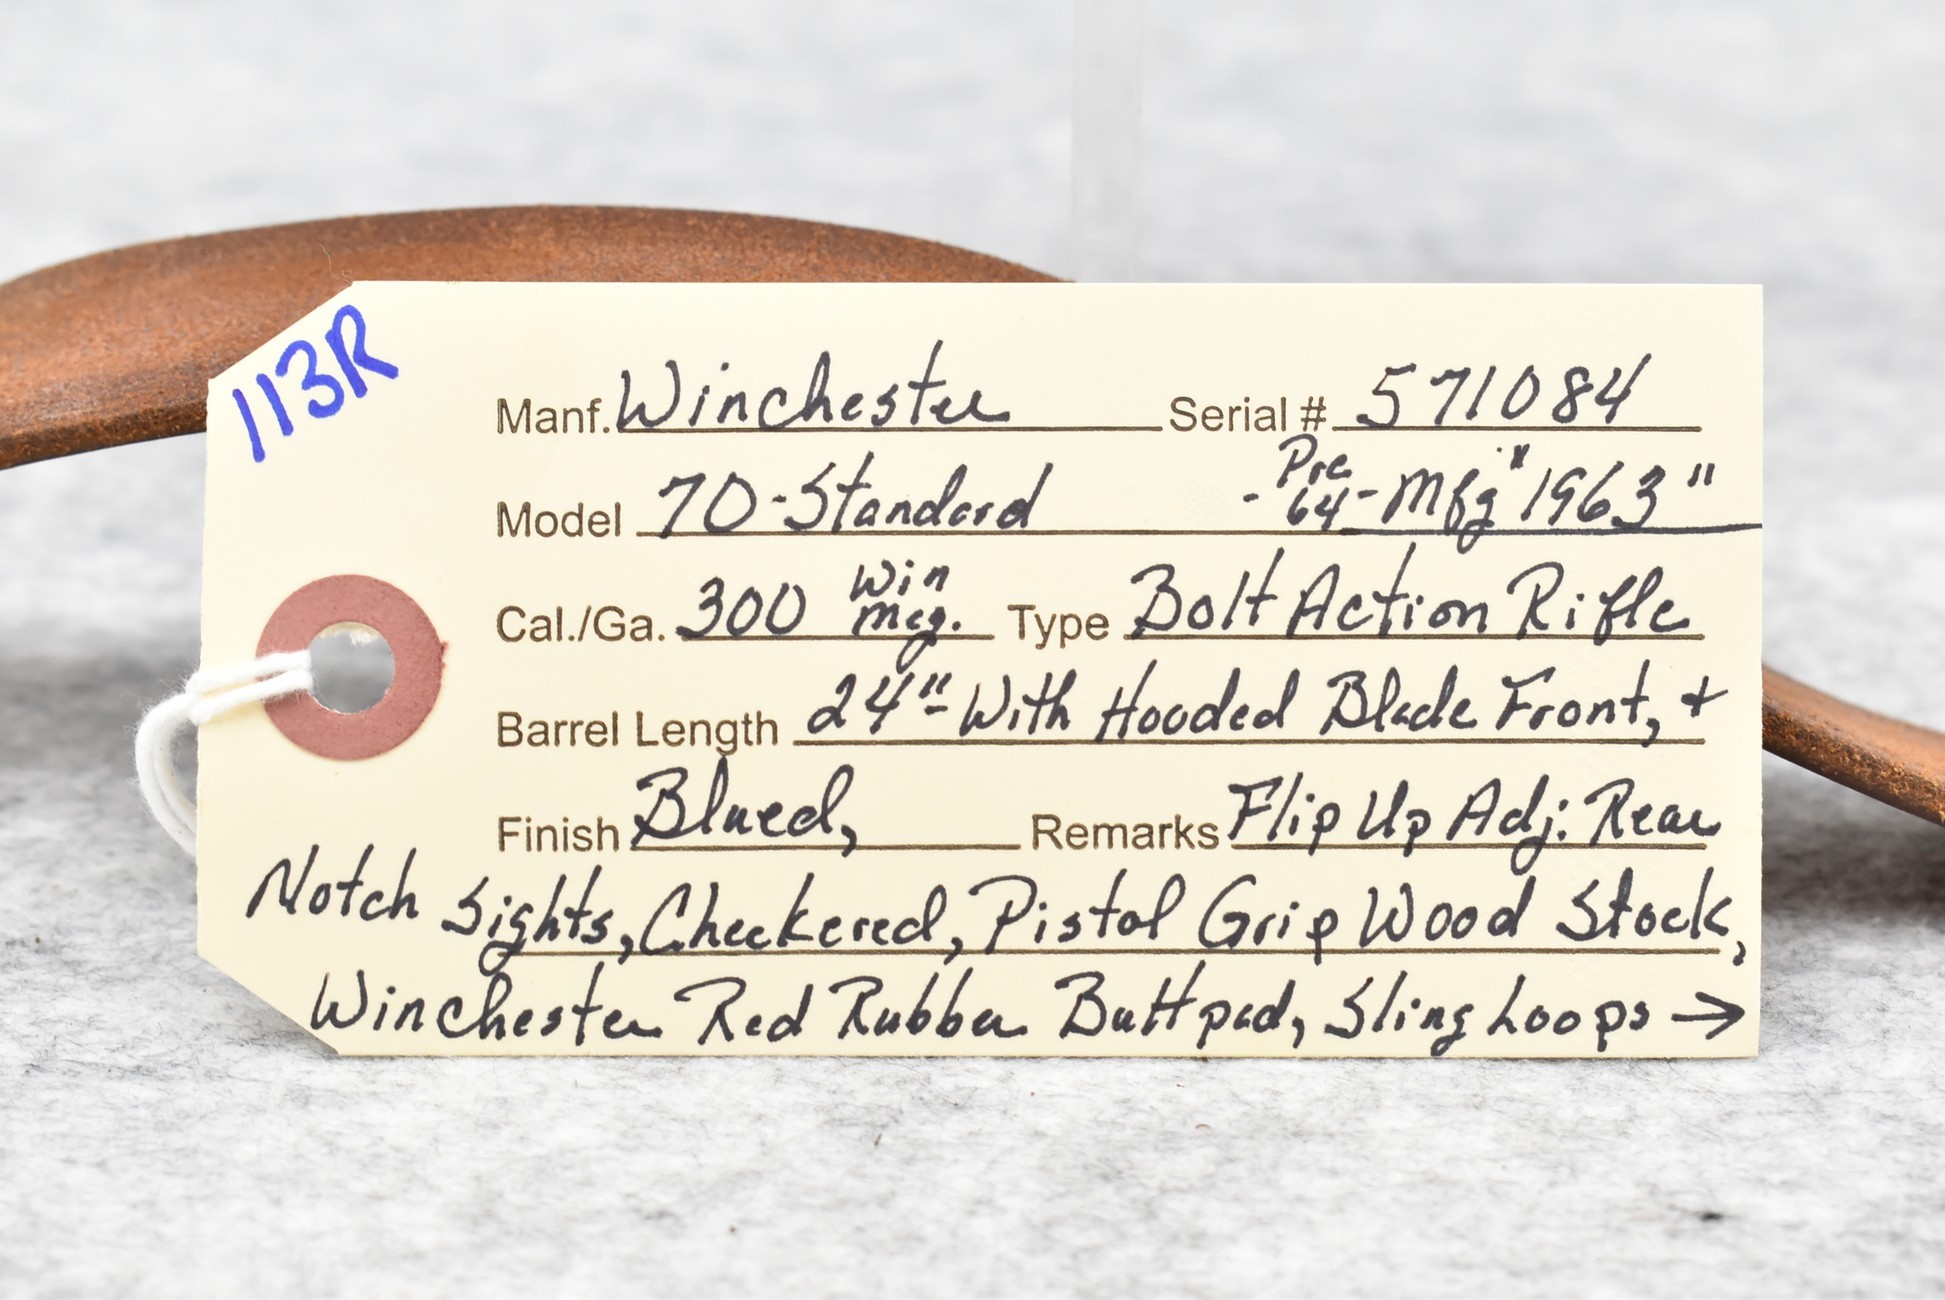 113R
Manf. Winchester Serial # 571084
Model 70-Standard - Pre 64 - Mfg "1963"
Cal./Ga. 300 Win Mag. Type Bolt Action Rifle
Barrel Length 24" - With Hooded Blade Front, +
Finish Blued, Remarks Flip Up Adj. Rear
Notch Sights, Checkered, Pistol Grip Wood Stock,
Winchester Red Rubber Buttpad, Sling Loops →